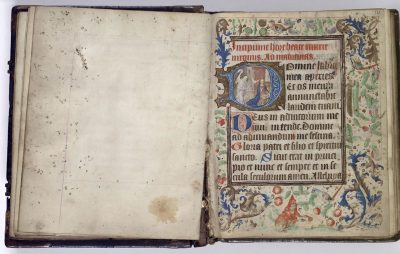 Incipiunt hore beate marie
virginis. Ad matutinas.
Domine labia
mea aperies
Et os meum
annunciabit
laudem tuam.
Deus in adiutorium me
um intende. Domine
ad adiuuandum me festina.
Gloria patri et filio et spiritui
sancto. Sicut erat in princi
pio et nunc et semper et in se
cula seculorum amen. Alleluya